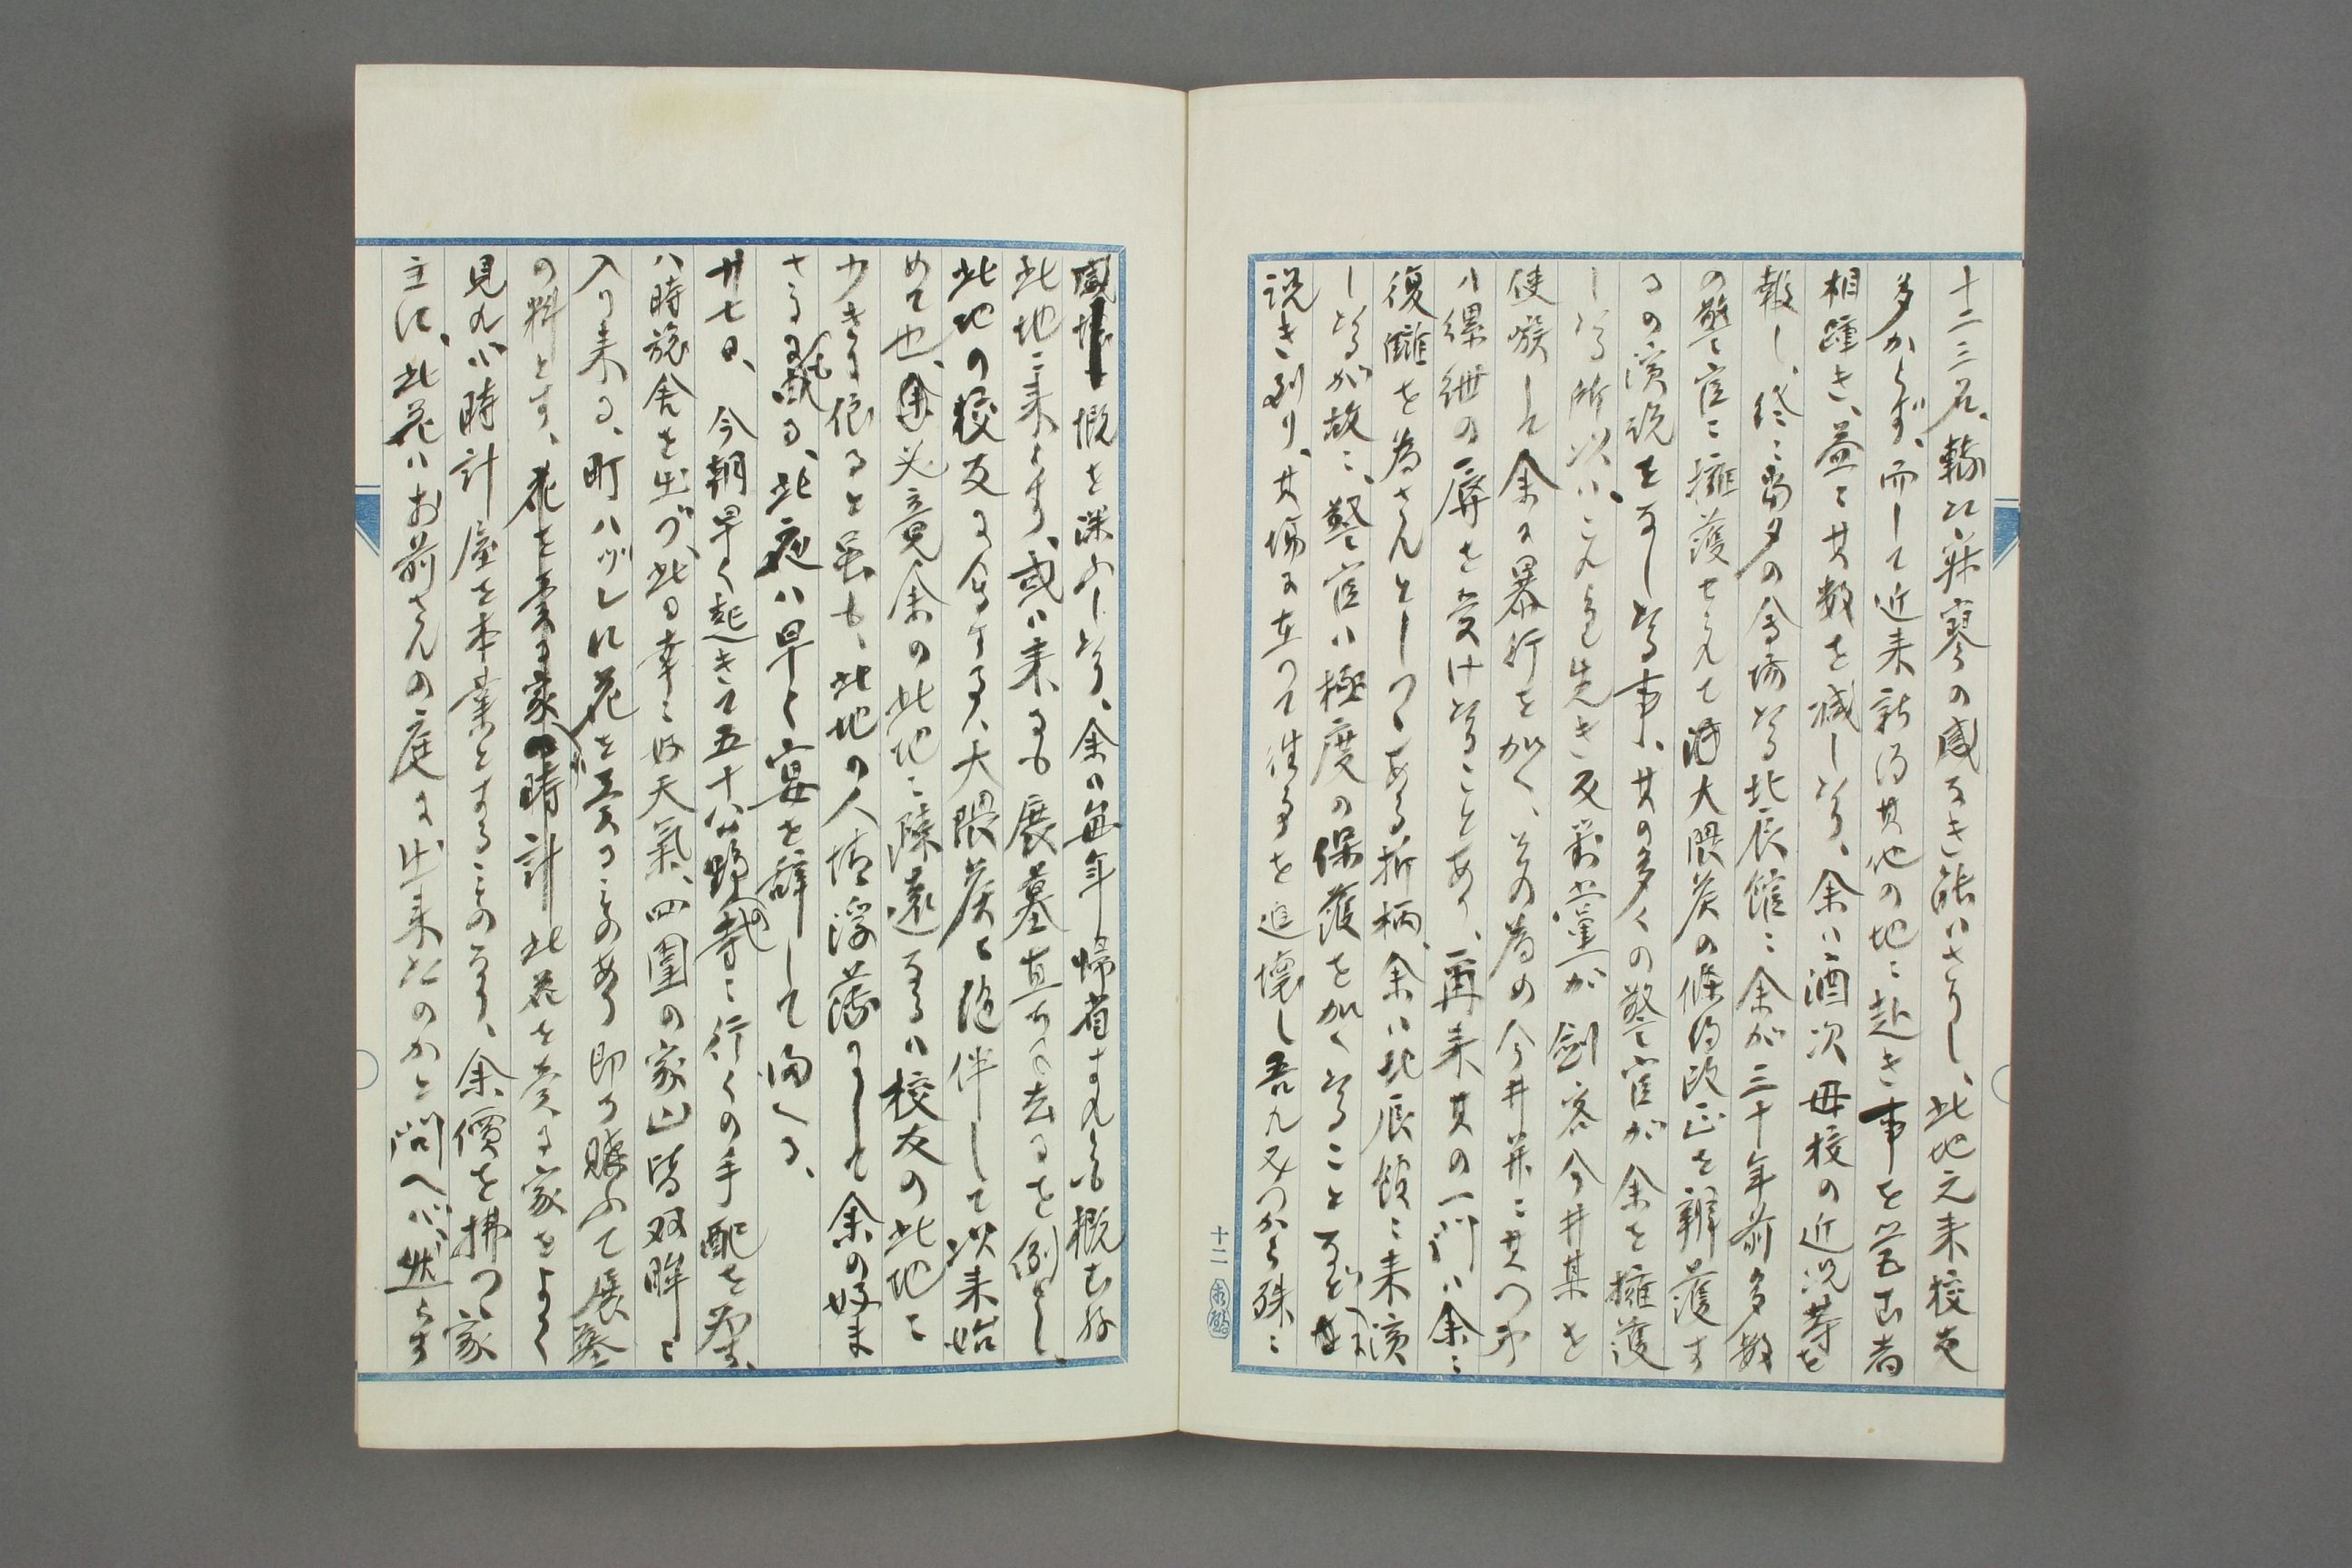 十二三名、轉た寂寥の感なき能ハさりし、此地元来校友
多からず、而して近来新潟其他の地ニ赴き事を営む者
相踵き、益々其数を減したり、余ハ酒次母校の近況等を
報し、終ニ当夕の会場たる北辰館ニ余が三十年前多数
の警官ニ擁護せられて大隈侯の條約改正を辯護す
るの演説をなしたる事、其の多くの警官が余を擁護
したる所以ハ、これより先き反対党が剣客今井某を
使嗾して余に暴行を加へ、その為め今井并ニ其一味
ハ縲絏の辱を受けたることあり、再来其の一味ハ余ニ
復讎を為さんとしつゝある折柄、余ハ北辰館ニ来演
したるが故ニ、警官ハ極度の保護を加へたることなと
説き到り、其場に在つて往事を追懐し吾れみつから殊ニ
感慨を深ふしたり、余ハ毎年帰省すれとも概むね
此地ニ来らす、或ハ来るも展墓直ちに去るを例とし、
此地の校友に会する、大隈侯と随伴して以来始
めて也、畢竟余の此地ニ疎遠なるハ校友の此地ニ
少きに依ると虽も、此地の人情浮薄にして余の好ま
さるにも蔵る、此夜ハ早く宴を辞して帰へる、
廿七日、今朝早く起きて五十公野の墓地ニ行くの手配を為す、
八時旅舎を出づ、此日幸ニ好天氣、四囲の家山皆双眸ニ
入り来る、町ハヅレに花を売る家あり即ち購ふて展墓
の料とす、時計 此花を売る家をよく
見れハ時計屋を本業とするものなり、余價を拂つゝ家
主に、此花ハお前さんの庭に出来たのかと問へバ、然らす
十二